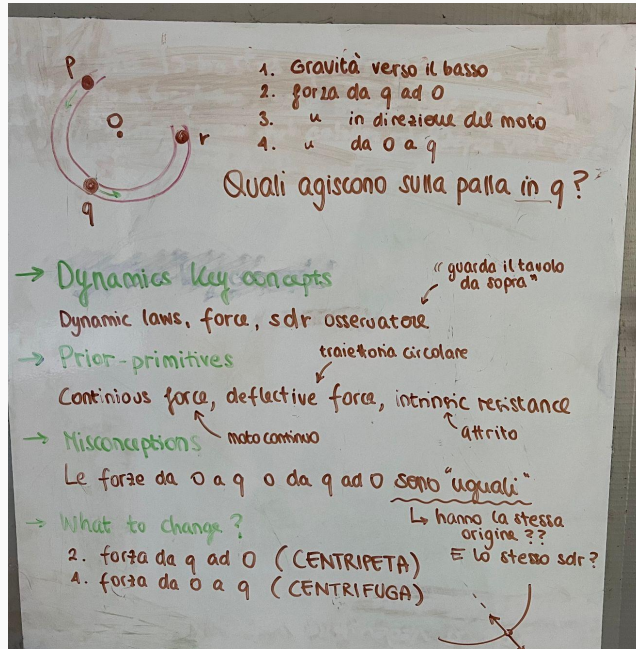 P
O
r
q
1. Gravità verso il basso
2. forza da q ad O
3. " in direzione del moto
4. " da O a q
Quali agiscono sulla palla in q?
→ Dynamics Key concepts
"guarda il tavolo
da sopra"
Dynamic laws, force, sdr osservatore
→ Prior-primitives
traiettoria circolare
Continious force, deflective force, intrinsic resistance
moto continuo
attrito
→ Misconceptions
Le forze da O a q o da q ad O sono "uguali"
↳ hanno la stessa
origine??
E lo stesso sdr?
→ What to change?
2. forza da q ad O (CENTRIPETA)
4. forza da O a q (CENTRIFUGA)